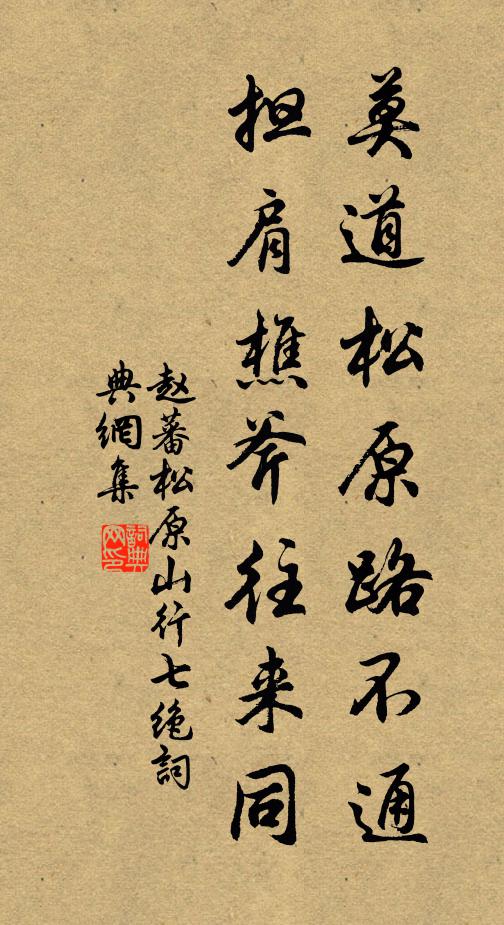 莫道松原路不通
担肩樵斧往来同
赵蕃松原山行七绝詞
典網集
詞典網印